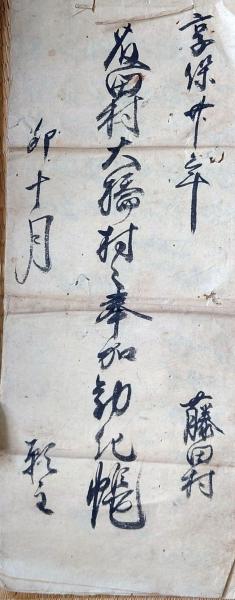 享保廿年
藤田村大橋村之奉加勧化帳
卯十月
藤田村
願主